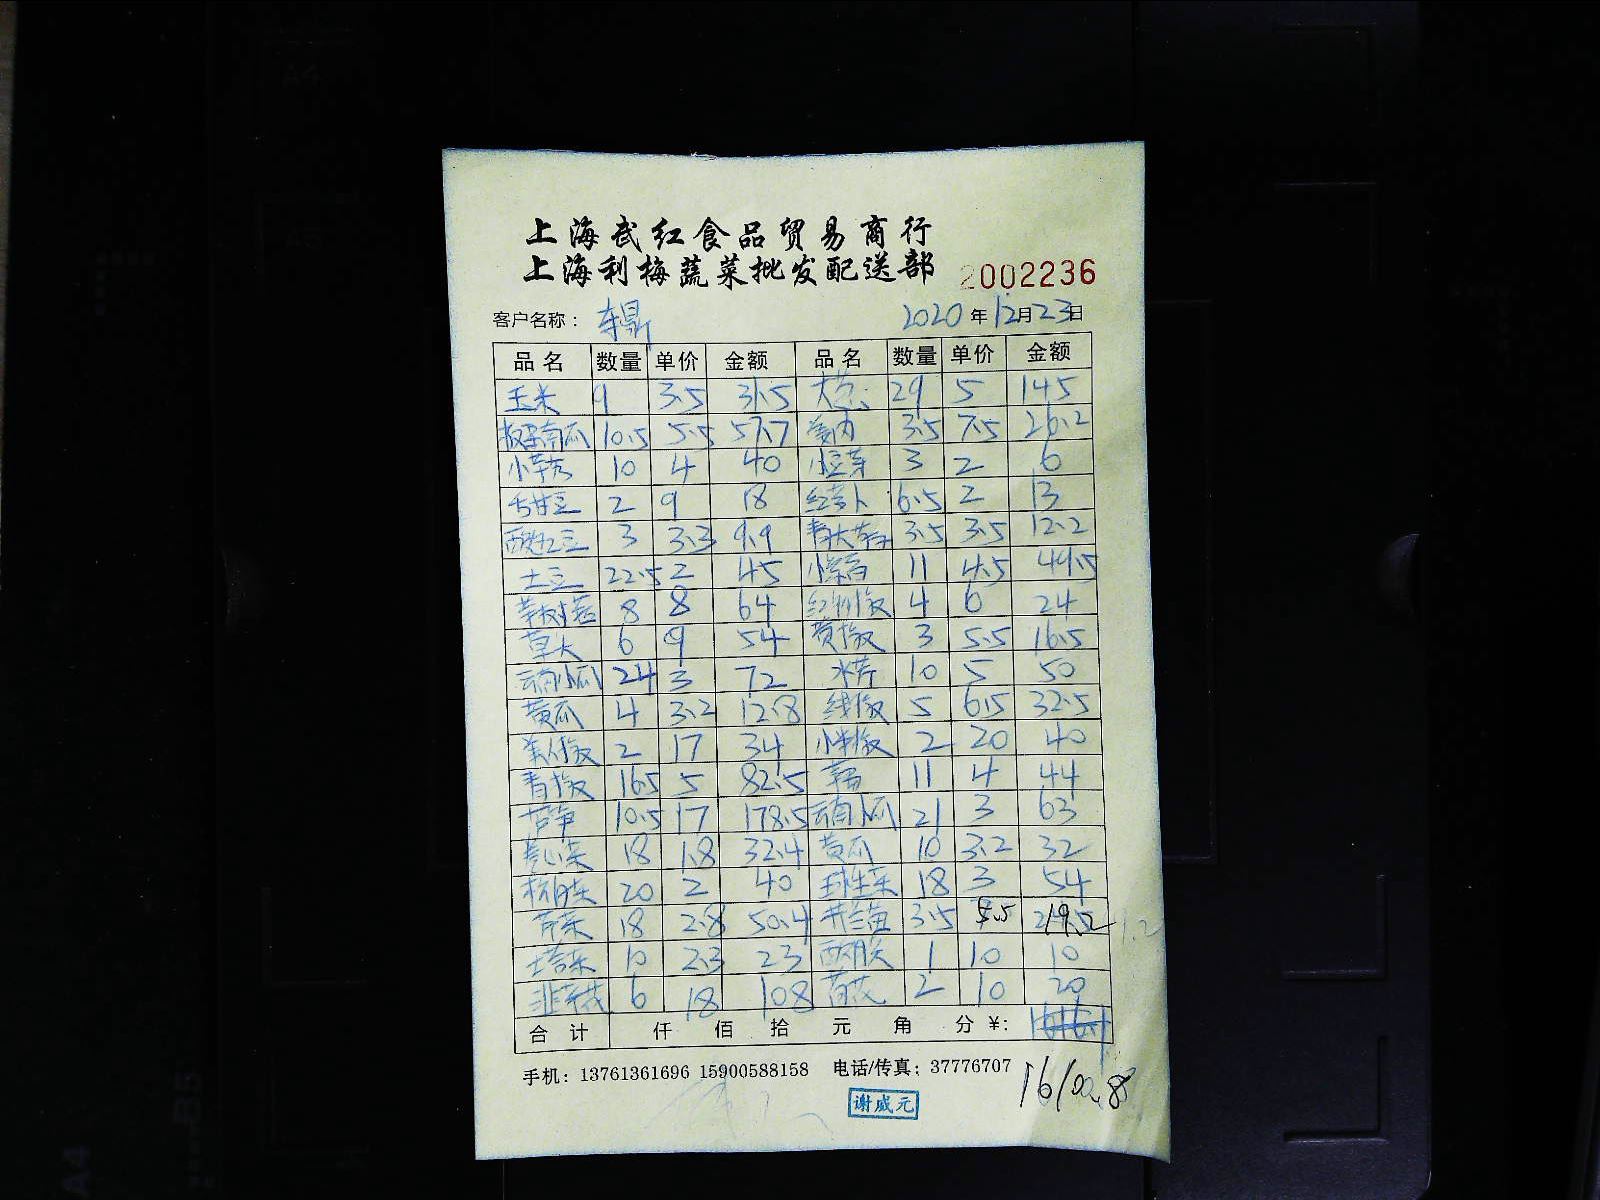 上海武红食品贸易商行
上海利梅蔬菜批发配送部 2002236
客户名称： 2020年12月23日
品名 数量 单价 金额 品名 数量 单价 金额
玉米 9 3.5 31.5 大葱 29 5 145
板栗南瓜 10.5 5.5 57.7 姜肉 3.5 7.5 26.2
小 10 4 40 小豆芽 3 2 6
2 9 18 红萝卜 6.5 2 13
3 3.3 9.9 青大 3.5 3.5 12.2
土豆 22.5 2 45 11 4.5 49.5
茶树菇 8 8 64 红 椒 4 6 24
草大 6 9 54 黄椒 3 5.5 16.5
云南小瓜 24 3 72 水芹 10 5 50
黄瓜 4 3.2 12.8 线椒 5 6.5 32.5
美人椒 2 17 34 小米椒 2 20 40
青椒 16.5 5 82.5 11 4 44
芦笋 10.5 17 178.5 云南小瓜 21 3 63
卷心菜 18 1.8 32.4 黄瓜 10 3.2 32
杭白菜 20 2 40 生菜 18 3 54
芹菜 18 2.8 50.4 芥兰苗 3.5 5.5 19.2
塔菜 10 2.3 23 1 10 10
韭菜花 6 18 108 2 10 20
合计 仟 佰 拾 元 角 分 ¥:
手机：13761361696 15900588158 电话/传真：37776707
谢威元